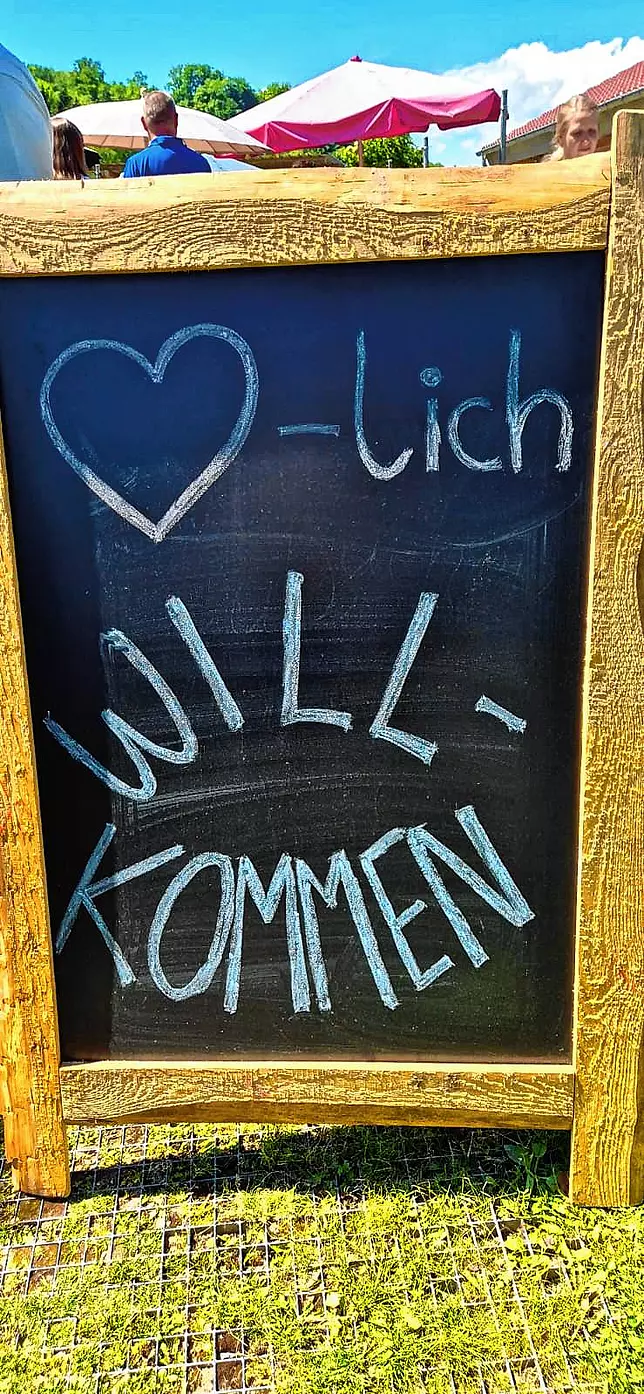 ♡-lich
WILL-
KOMMEN